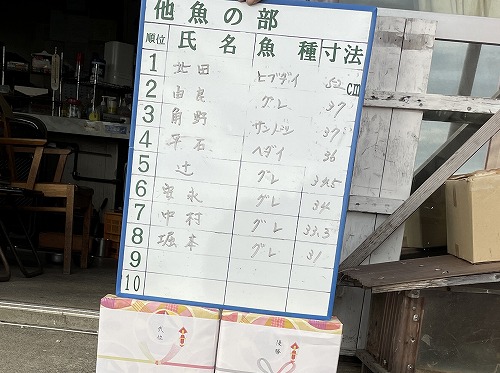 他魚の部
順位 氏名 魚種 寸法
1 北田 ヒブダイ 52 cm
2 由良 グレ 37
3 角野 サンドン 37
4 平石 ヘダイ 36
5 辻 グレ 34.5
6 安永 グレ 34
7 中村 グレ 33.3
8 堀本 グレ 31
9
10
優勝